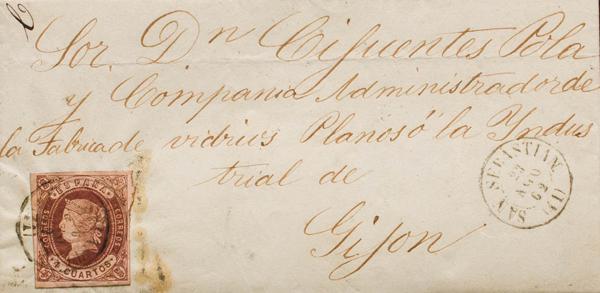 Sor. Dn Cifuentes Pola
y Compania Administrador de
la Fabrica de vidrios Planos ó "la Yndus
trial de
Gijon
SAN SEBASTIAN (11)
23
AGO
62
ESPAÑA
CORREOS
CORREOS
4 CUARTOS